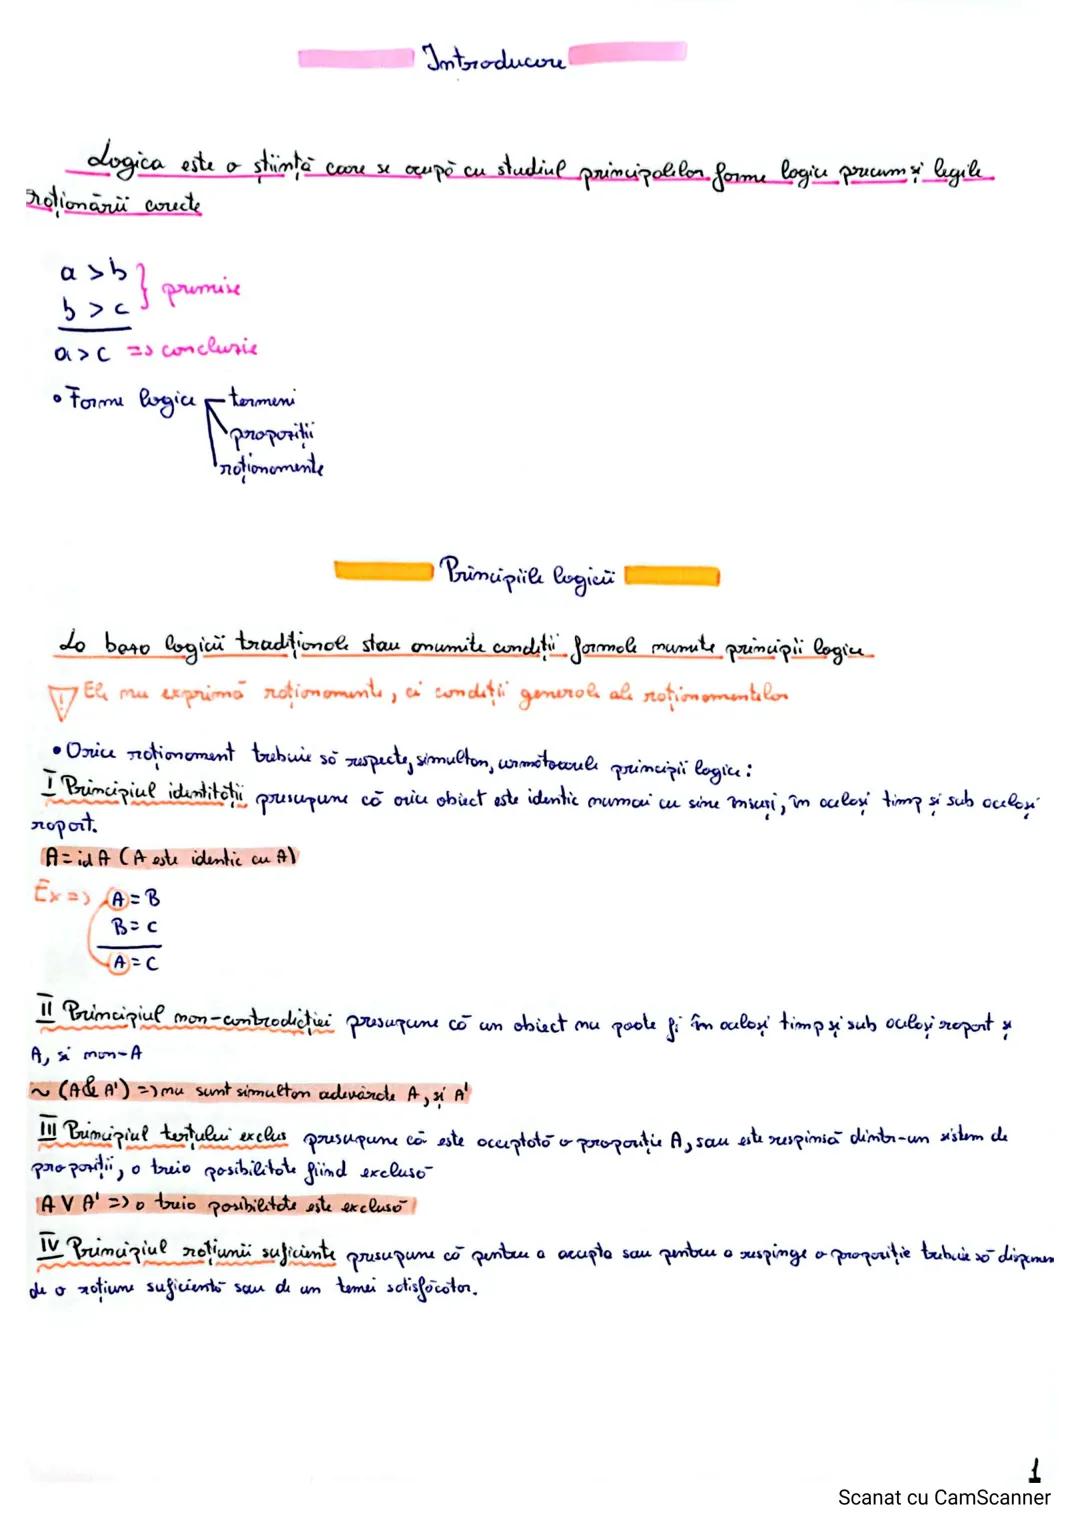 Introducere
Logica este o știință care se ocupă cu studiul principalelor forme logice precum și legile
raționării corecte
a > b
b > c } premise
a > c => concluzie
• Forme logice - termeni
propoziții
raționamente
Principiile logicii
La baza logicii tradiționale stau anumite condiții formale numite principii logice
! Ele nu exprimă raționamente, ci condiții generale ale raționamentelor
• Orice raționament trebuie să respecte, simultan, următoarele principii logice:
I Principiul identității presupune că orice obiect este identic numai cu sine însuși, în același timp și sub același
raport.
A = id A (A este identic cu A)
Ex => A = B
B = C
A = C
II Principiul non-contradicției presupune că un obiect nu poate fi în același timp și sub același raport și
A, și non-A
~ (A & A') => nu sunt simultan adevărate A, și A'
III Principiul terțului exclus presupune că este acceptată o propoziție A, sau este respinsă dintr-un sistem de
propoziții, o treia posibilitate fiind exclusă
A V A' => o treia posibilitate este exclusă
IV Principiul rațiunii suficiente presupune că pentru a accepta sau pentru a respinge o propoziție trebuie să dispunem
de o rațiune suficientă sau de un temei satisfăcător.
1
Scanat cu CamScanner